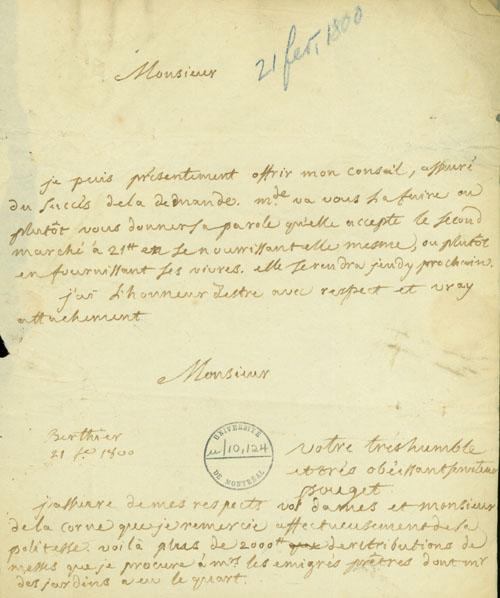 21 fev, 1800
Monsieur
je puis présentement offrir mon conseil, assuré
du succès de la demande. mde va vous la faire ou
plutôt vous donner sa parole qu'elle accepte le second
marché à 21tt en se nourrissant elle mesme, ou plutôt
en fournissant ses vivres. elle se rendra jeudy prochain.
j'ai l'honneur d'estre avec respect et vray
attachement
Monsieur
Berthier
21 fer 1800
UNIVERSITÉ
u/10,124
DE MONTRÉAL
votre très humble
et très obéissant serviteur
pouget
j'assure de mes respects vos dames et monsieur
de la corne que je remercie affectueusement de sa
politesse. voilà plus de 2000tt de retributions de
messes que je procure à mrs les emigrés prêtres dont mr
des jardins a eu le quart.